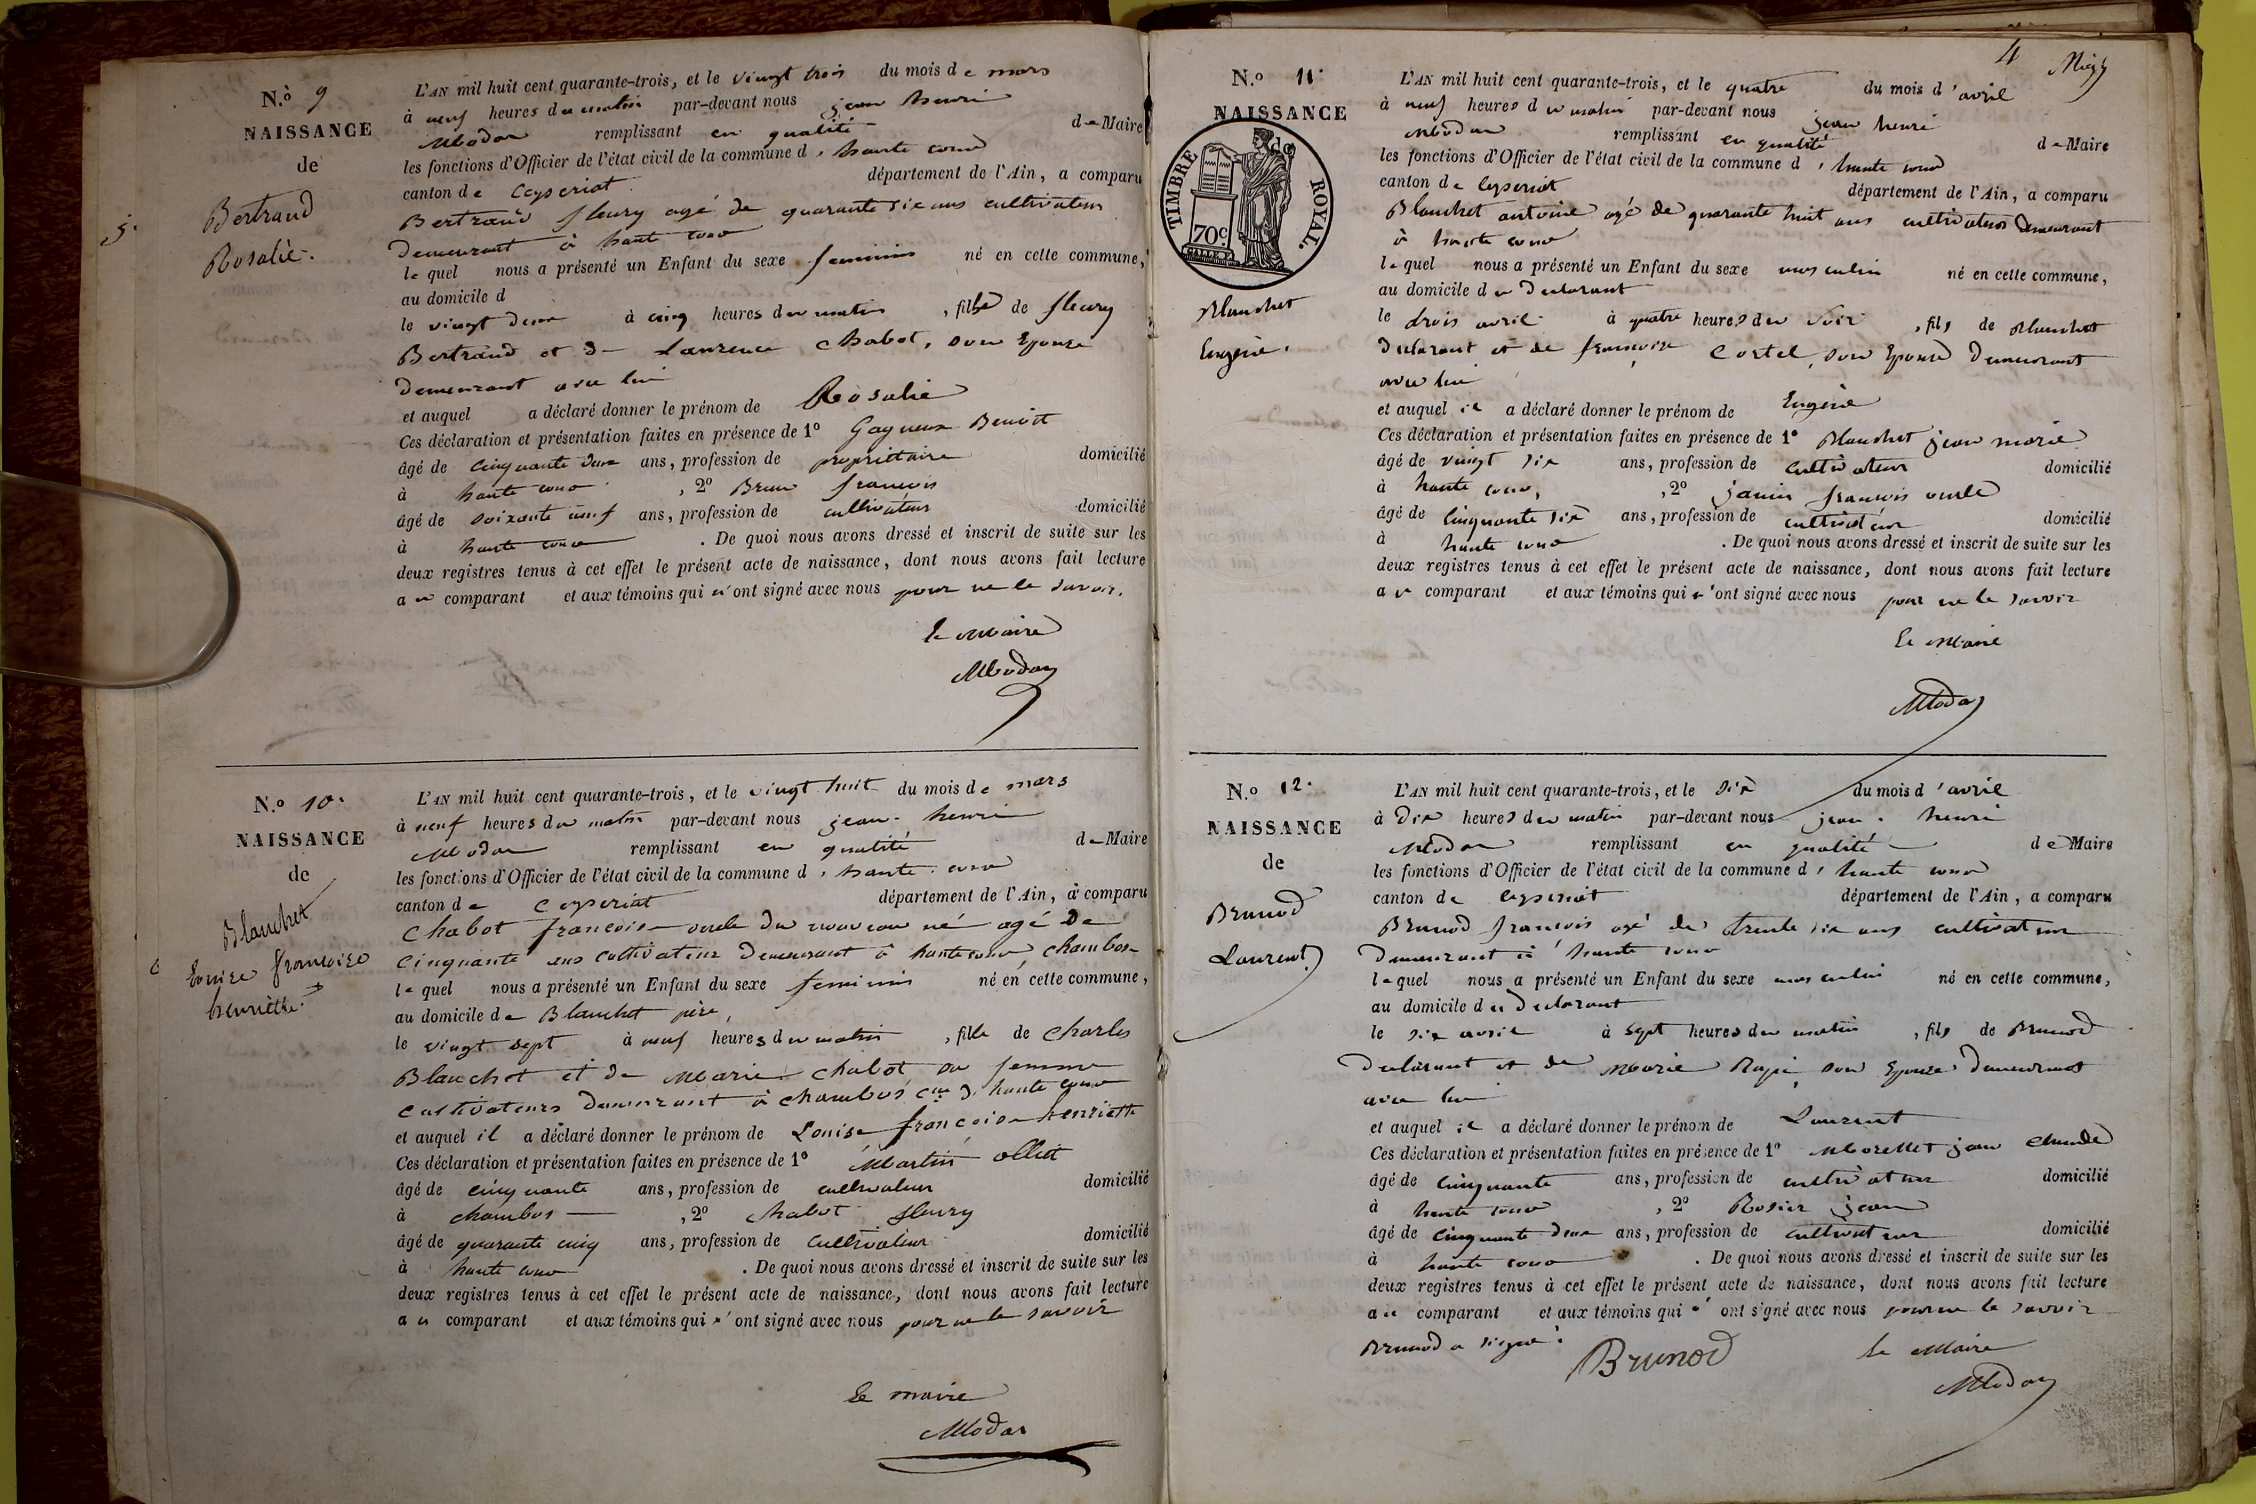 N.º 9
NAISSANCE
de
Bertrand
Rosalie.
5.
L'AN mil huit cent quarante-trois, et le vingt trois du mois de mars
à neuf heures du matin par-devant nous jean henri
Modas remplissant en qualité de Maire
les fonctions d'Officier de l'état civil de la commune d'haute cour
canton de Ceyseriat département de l'Ain, a comparu
Bertrand fleury agé de quarante six ans cultivateur
demeurant à haute cour
lequel nous a présenté un Enfant du sexe feminin né en cette commune,
au domicile d
le vingt deux à cinq heures du matin, fille de fleury
Bertrand et de Laurence Chabot, son Epouse
demeurant avec lui
et auquel a déclaré donner le prénom de Rosalie
Ces déclaration et présentation faites en présence de 1º Gagneux Benoit
âgé de cinquante deux ans, profession de propriettaire domicilié
à haute cour, 2º Brun francois
âgé de soixante neuf ans, profession de cultivateur domicilié
à haute cour. De quoi nous avons dressé et inscrit de suite sur les
deux registres tenus à cet effet le présent acte de naissance, dont nous avons fait lecture
au comparant et aux témoins qui n'ont signé avec nous pour ne le savoir.
le Maire
Modas
N.º 10.
NAISSANCE
de
Blanchet
Louise francoise
henriette.
6
L'AN mil huit cent quarante-trois, et le vingt huit du mois de mars
à neuf heures du matin par-devant nous jean henri
Modas remplissant en qualité de Maire
les fonctions d'Officier de l'état civil de la commune d'haute cour
canton de Ceyseriat département de l'Ain, a comparu
Chabot francois oncle du nouveau né agé de
cinquante ans cultivateur demeurant à haute cour, chambos
lequel nous a présenté un Enfant du sexe feminin né en cette commune,
au domicile de Blanchet père,
le vingt sept à neuf heures du matin, fille de Charles
Blanchet et de Marie Chabot sa femme
cultivateurs demeurant à chambos cne d'haute cour
et auquel il a déclaré donner le prénom de Louise francoise henriette
Ces déclaration et présentation faites en présence de 1º Martin ollier
âgé de cinquante ans, profession de cultivateur domicilié
à chambos, 2º Chabot fleury
âgé de quarante cinq ans, profession de Cultivateur domicilié
à haute cour. De quoi nous avons dressé et inscrit de suite sur les
deux registres tenus à cet effet le présent acte de naissance, dont nous avons fait lecture
au comparant et aux témoins qui n'ont signé avec nous pour ne le savoir
Le maire
Modas
4
N.º 11.
NAISSANCE
de
TIMBRE ROYAL.
70c
Blanchet
Eugène.
L'AN mil huit cent quarante-trois, et le quatre du mois d'avril
à neuf heures du matin par-devant nous jean henri
Modas remplissant en qualité de Maire
les fonctions d'Officier de l'état civil de la commune d'haute cour
canton de Ceyseriat département de l'Ain, a comparu
Blanchet antoine agé de quarante huit ans cultivateur demeurant
à haute cour
lequel nous a présenté un Enfant du sexe masculin né en cette commune,
au domicile du declarant
le trois avril à quatre heures du soir, fils de Blanchet
declarant et de francoise Cortel, son Epouse demeurant
avec lui
et auquel il a déclaré donner le prénom de Eugène
Ces déclaration et présentation faites en présence de 1º Blanchet jean marie
âgé de vingt six ans, profession de cultivateur domicilié
à haute cour, 2º janin francois oncle
âgé de cinquante six ans, profession de cultivateur domicilié
à haute cour. De quoi nous avons dressé et inscrit de suite sur les
deux registres tenus à cet effet le présent acte de naissance, dont nous avons fait lecture
au comparant et aux témoins qui n'ont signé avec nous pour ne le savoir
Le Maire
Modas
N.º 12.
NAISSANCE
de
Brunod
Laurent
L'AN mil huit cent quarante-trois, et le six du mois d'avril
à dix heures du matin par-devant nous jean henri
Modas remplissant en qualité de Maire
les fonctions d'Officier de l'état civil de la commune d'haute cour
canton de Ceyseriat département de l'Ain, a comparu
Brunod francois agé de trente six ans cultivateur
demeurant à haute cour
lequel nous a présenté un Enfant du sexe masculin né en cette commune,
au domicile du declarant
le six avril à sept heures du matin, fils de Brunod
declarant et de Marie son Epouse demeurant
avec lui
et auquel il a déclaré donner le prénom de Laurent
Ces déclaration et présentation faites en présence de 1º Morellet jean claude
âgé de cinquante ans, profession de cultivateur domicilié
à haute cour, 2º Rosier jean
âgé de cinquante deux ans, profession de cultivateur domicilié
à haute cour. De quoi nous avons dressé et inscrit de suite sur les
deux registres tenus à cet effet le présent acte de naissance, dont nous avons fait lecture
au comparant et aux témoins qui n'ont signé avec nous pour ne le savoir
Brunod a signé.
Brunod
le Maire
Modas